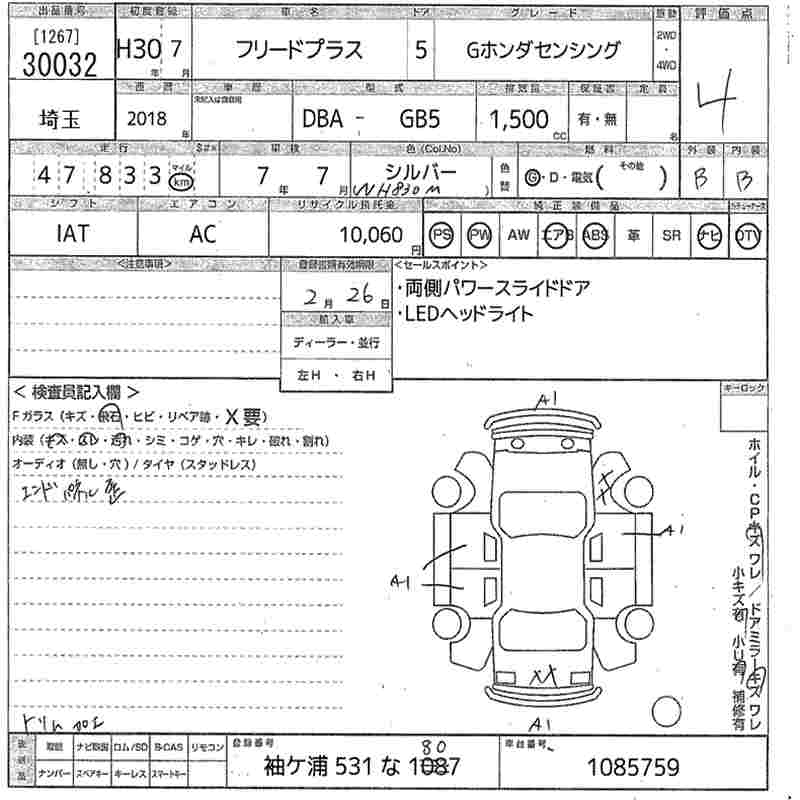 出品番号 初度登録 車名 ドア グレード 駆動 評価点
[1267]
30032 H30年 7月 フリードプラス 5 Gホンダセンシング 2WD・4WD 4
西暦 車歴 型式 排気量 保証書 定員
埼玉 2018年 未記入は自家用 DBA - GB5 1,500cc 有・無 名
走行 車検 色(Col.No) 燃料 外装 内装
47833 マイル km 7年 7月 シルバー 色替 G・D・電気( その他 ) B B
(NH830M)
シフト エアコン リサイクル預託金 純正装備品
IAT AC 10,060円 PS PW AW エアB ABS 革 SR ナビ DTV
<注意事項> 登録書類有効期限 <セールスポイント>
2月 26日 ・両側パワースライドドア
・LEDヘッドライト
輸入車
ディーラー・並行
左H ・ 右H
< 検査員記入欄 > キーロック
Fガラス(キズ・飛石・ヒビ・リペア跡・X要)
内装(キズ・スレ・汚れ・シミ・コゲ・穴・キレ・破れ・割れ)
オーディオ(無し・穴)/タイヤ(スタッドレス)
エンドパネル歪
A1
A1
A1
XX
A1
ホイル・CPキズワレ/ドアミラーキズワレ
小キズ有 小U有 補修有
トリム加工
後送品 取説 ナビ取説 ロム/SD B-CAS リモコン 登録番号 車台番号
ナンバー スペアキー キーレス スマートキー 袖ケ浦 531 な 1087 80 1085759